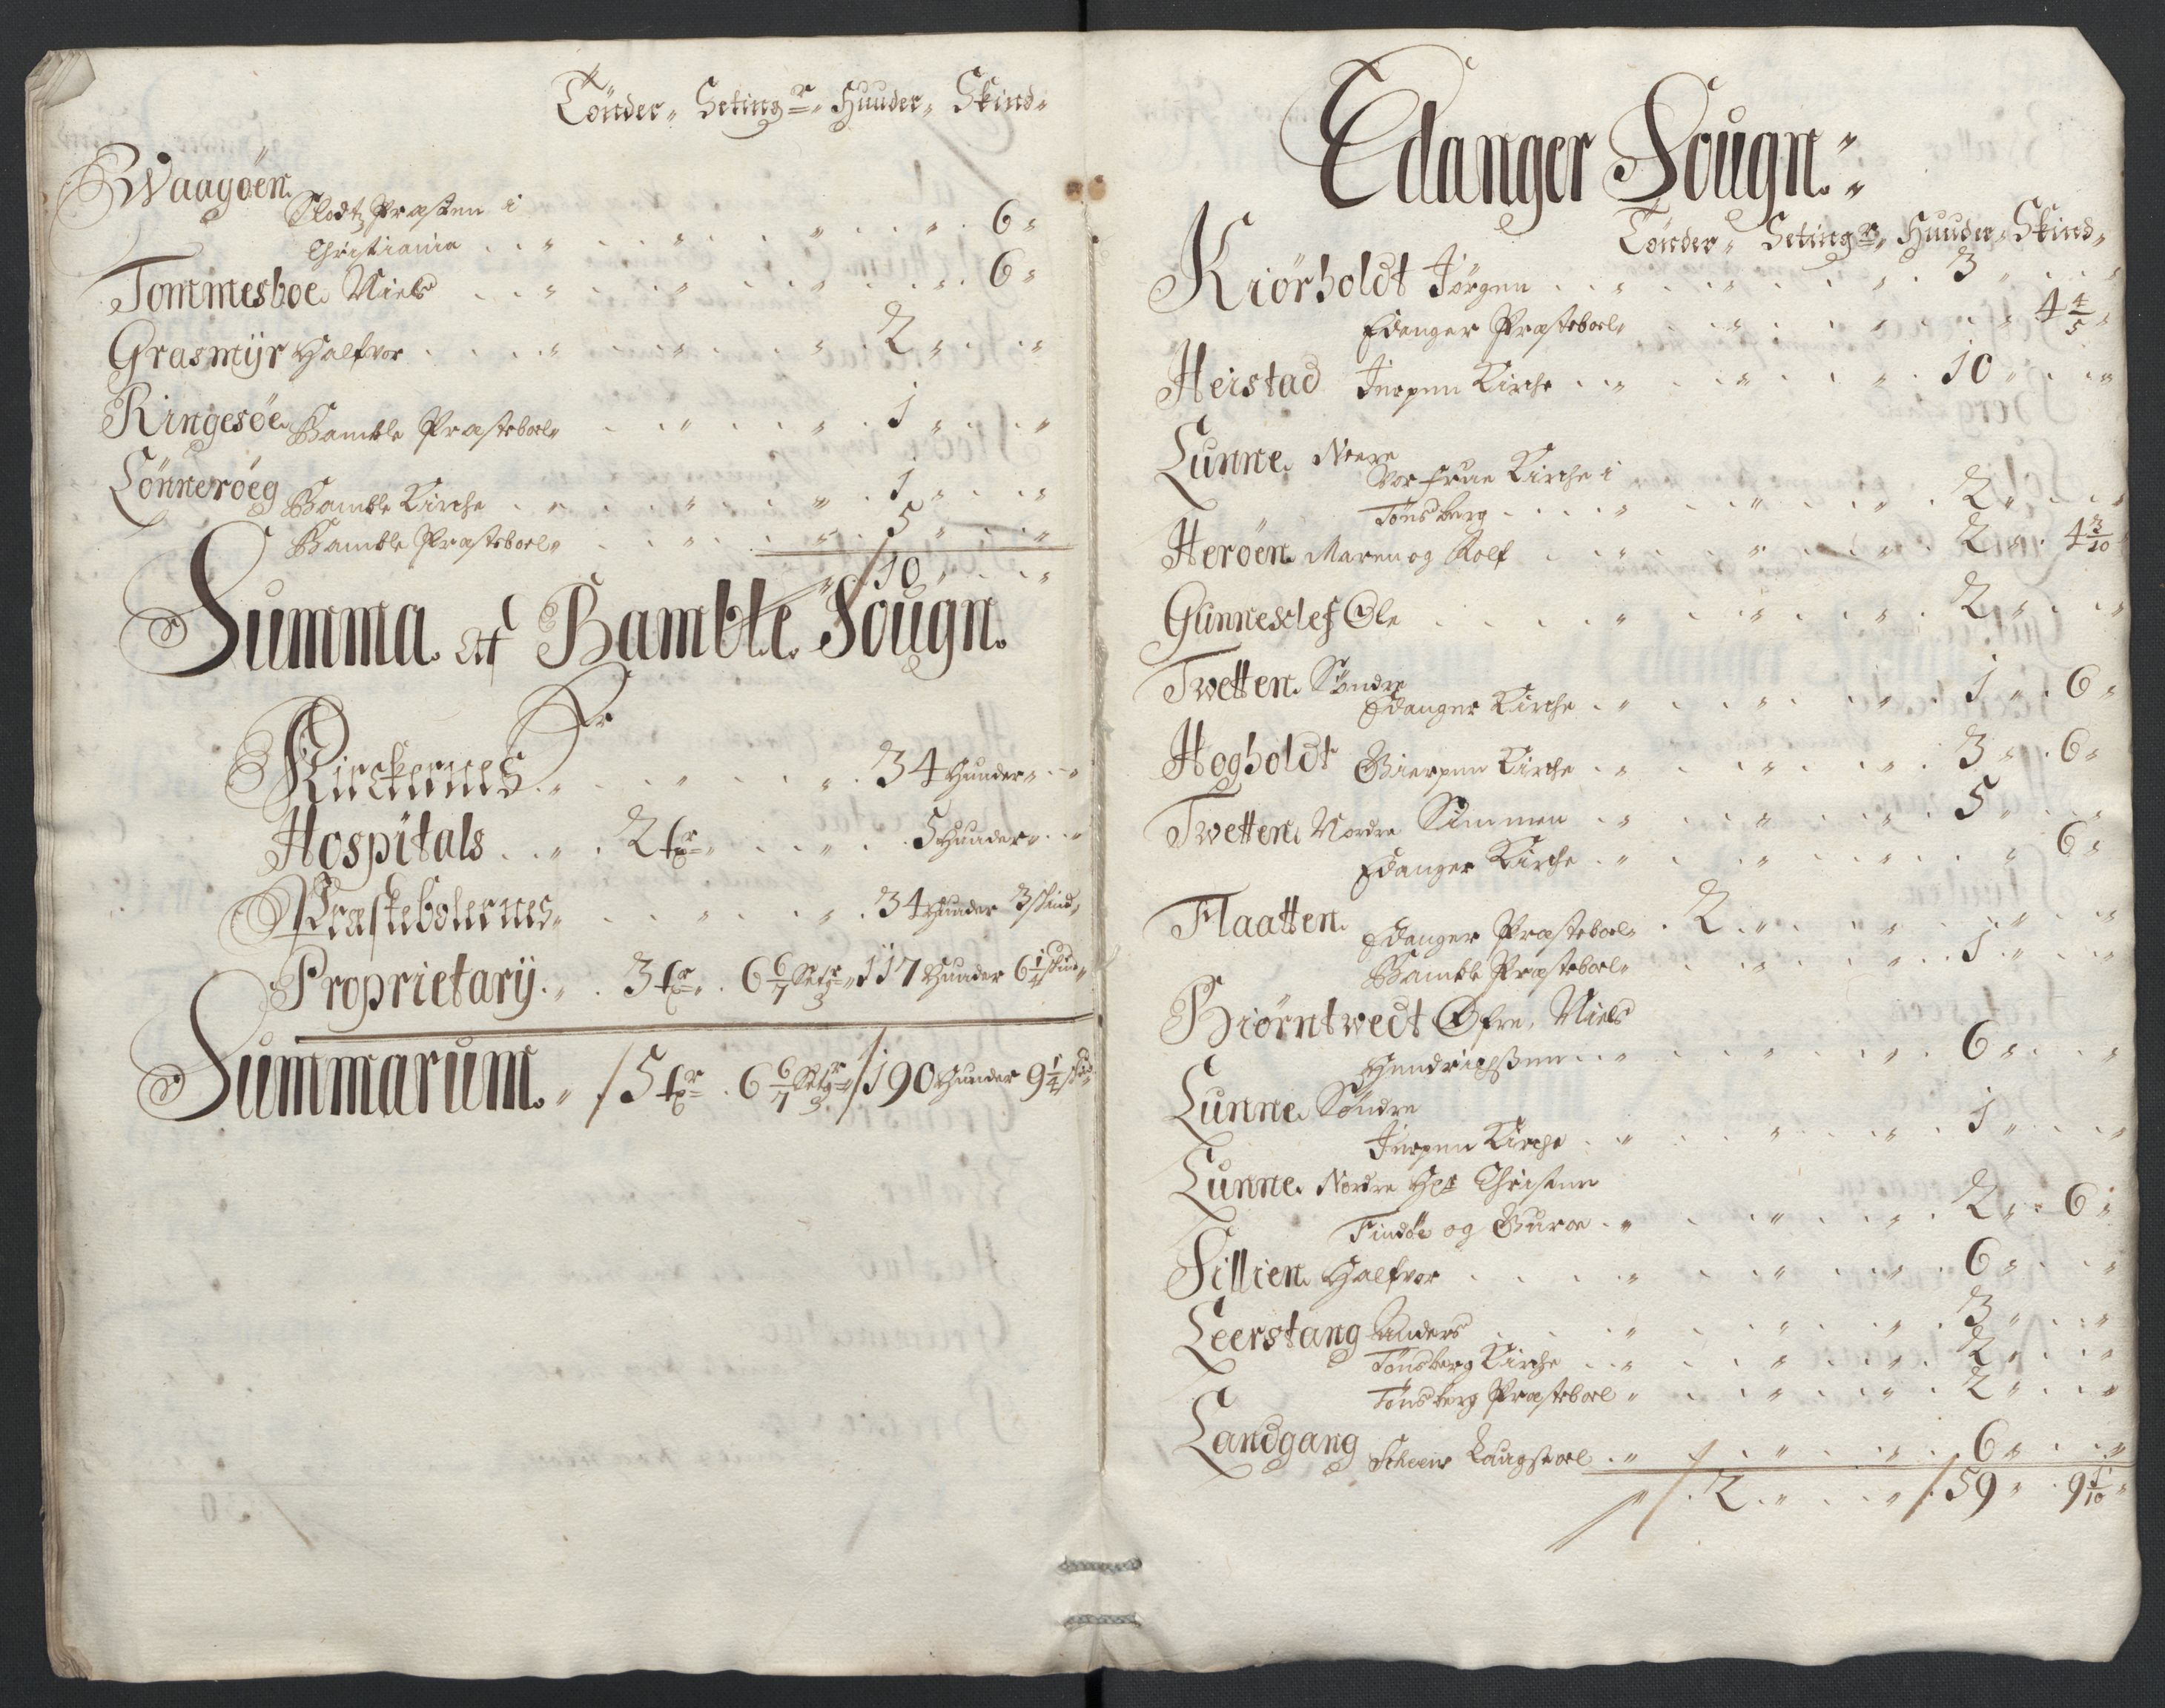 Tönder„ Seting r„ Huuder„ Skind„
Waagöen. Slodtz Præsten i
Christiania 6„
Tommesboe. Niels 6„
Grasmÿr Halfvor 2„
Ringesöe. Bamble Præsteboel„ 1„
Lönneröeg Bamble Kirche 1„
Bamble Præsteboel„ 5„
10„
Summa. af Bamble. Sougn.
Kirckernes 34 Huuder„
Hospitals 2 tr„ 5 Huuder„
Præstebolernes„ 34 Huuder 3 skind„
Proprietarÿ. 3 tr„ 6 6/7 Setgr„ 117 Huuder 6 1/4 skind„
Summarum.„ 5 tr 6 6/7 Setgr„ 190 Huuder 9 1/4 skind
Edanger Sougn.„
Tönder„ Seting r„ Huuder„ Skind„
Kiörholdt Jörgen 3„
Edanger Præsteboel„ 4 4/5„
Heistad Jerpen Kirche 10„
Lunne. Neere
Vor frue Kirche i
Tönsberg 2„
Heröen. Maren og Rolf 2„ 4 3/10
Gunnesclef Ole 2„
Twetten. Söndre
Edanger Kirche 1„ 6„
Hogholdt Gierpen Kirche 3„ 6„
Twetten. Nordre Simmen 5„
Edanger Kirche 6„
Flaatten. Edanger Præsteboel„ 2„
Bamble Præsteboel„ 1„
Biörntwedt Öfre. Niels
Hendrichssen 6„
Lunne. Söndre
Jerpen Kirche 1„
Lunne. Nordre Hr Christen
Findöe og Guroe 2„ 6„
Fillien. Halfvor 6„
Leerstang Anders 3„
Tönsberg Kirche 2„
Tönsberg Præsteboel„ 2„
Landgang Scheens Laugstoel 6„
2„ 59„ 9 1/10„